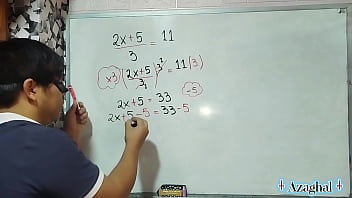 2x+5 = 11
3
x3 (2x+5)3 = 11(3)
3
-5
2x+5 = 33
2x+5-5 = 33-5
Azaghal